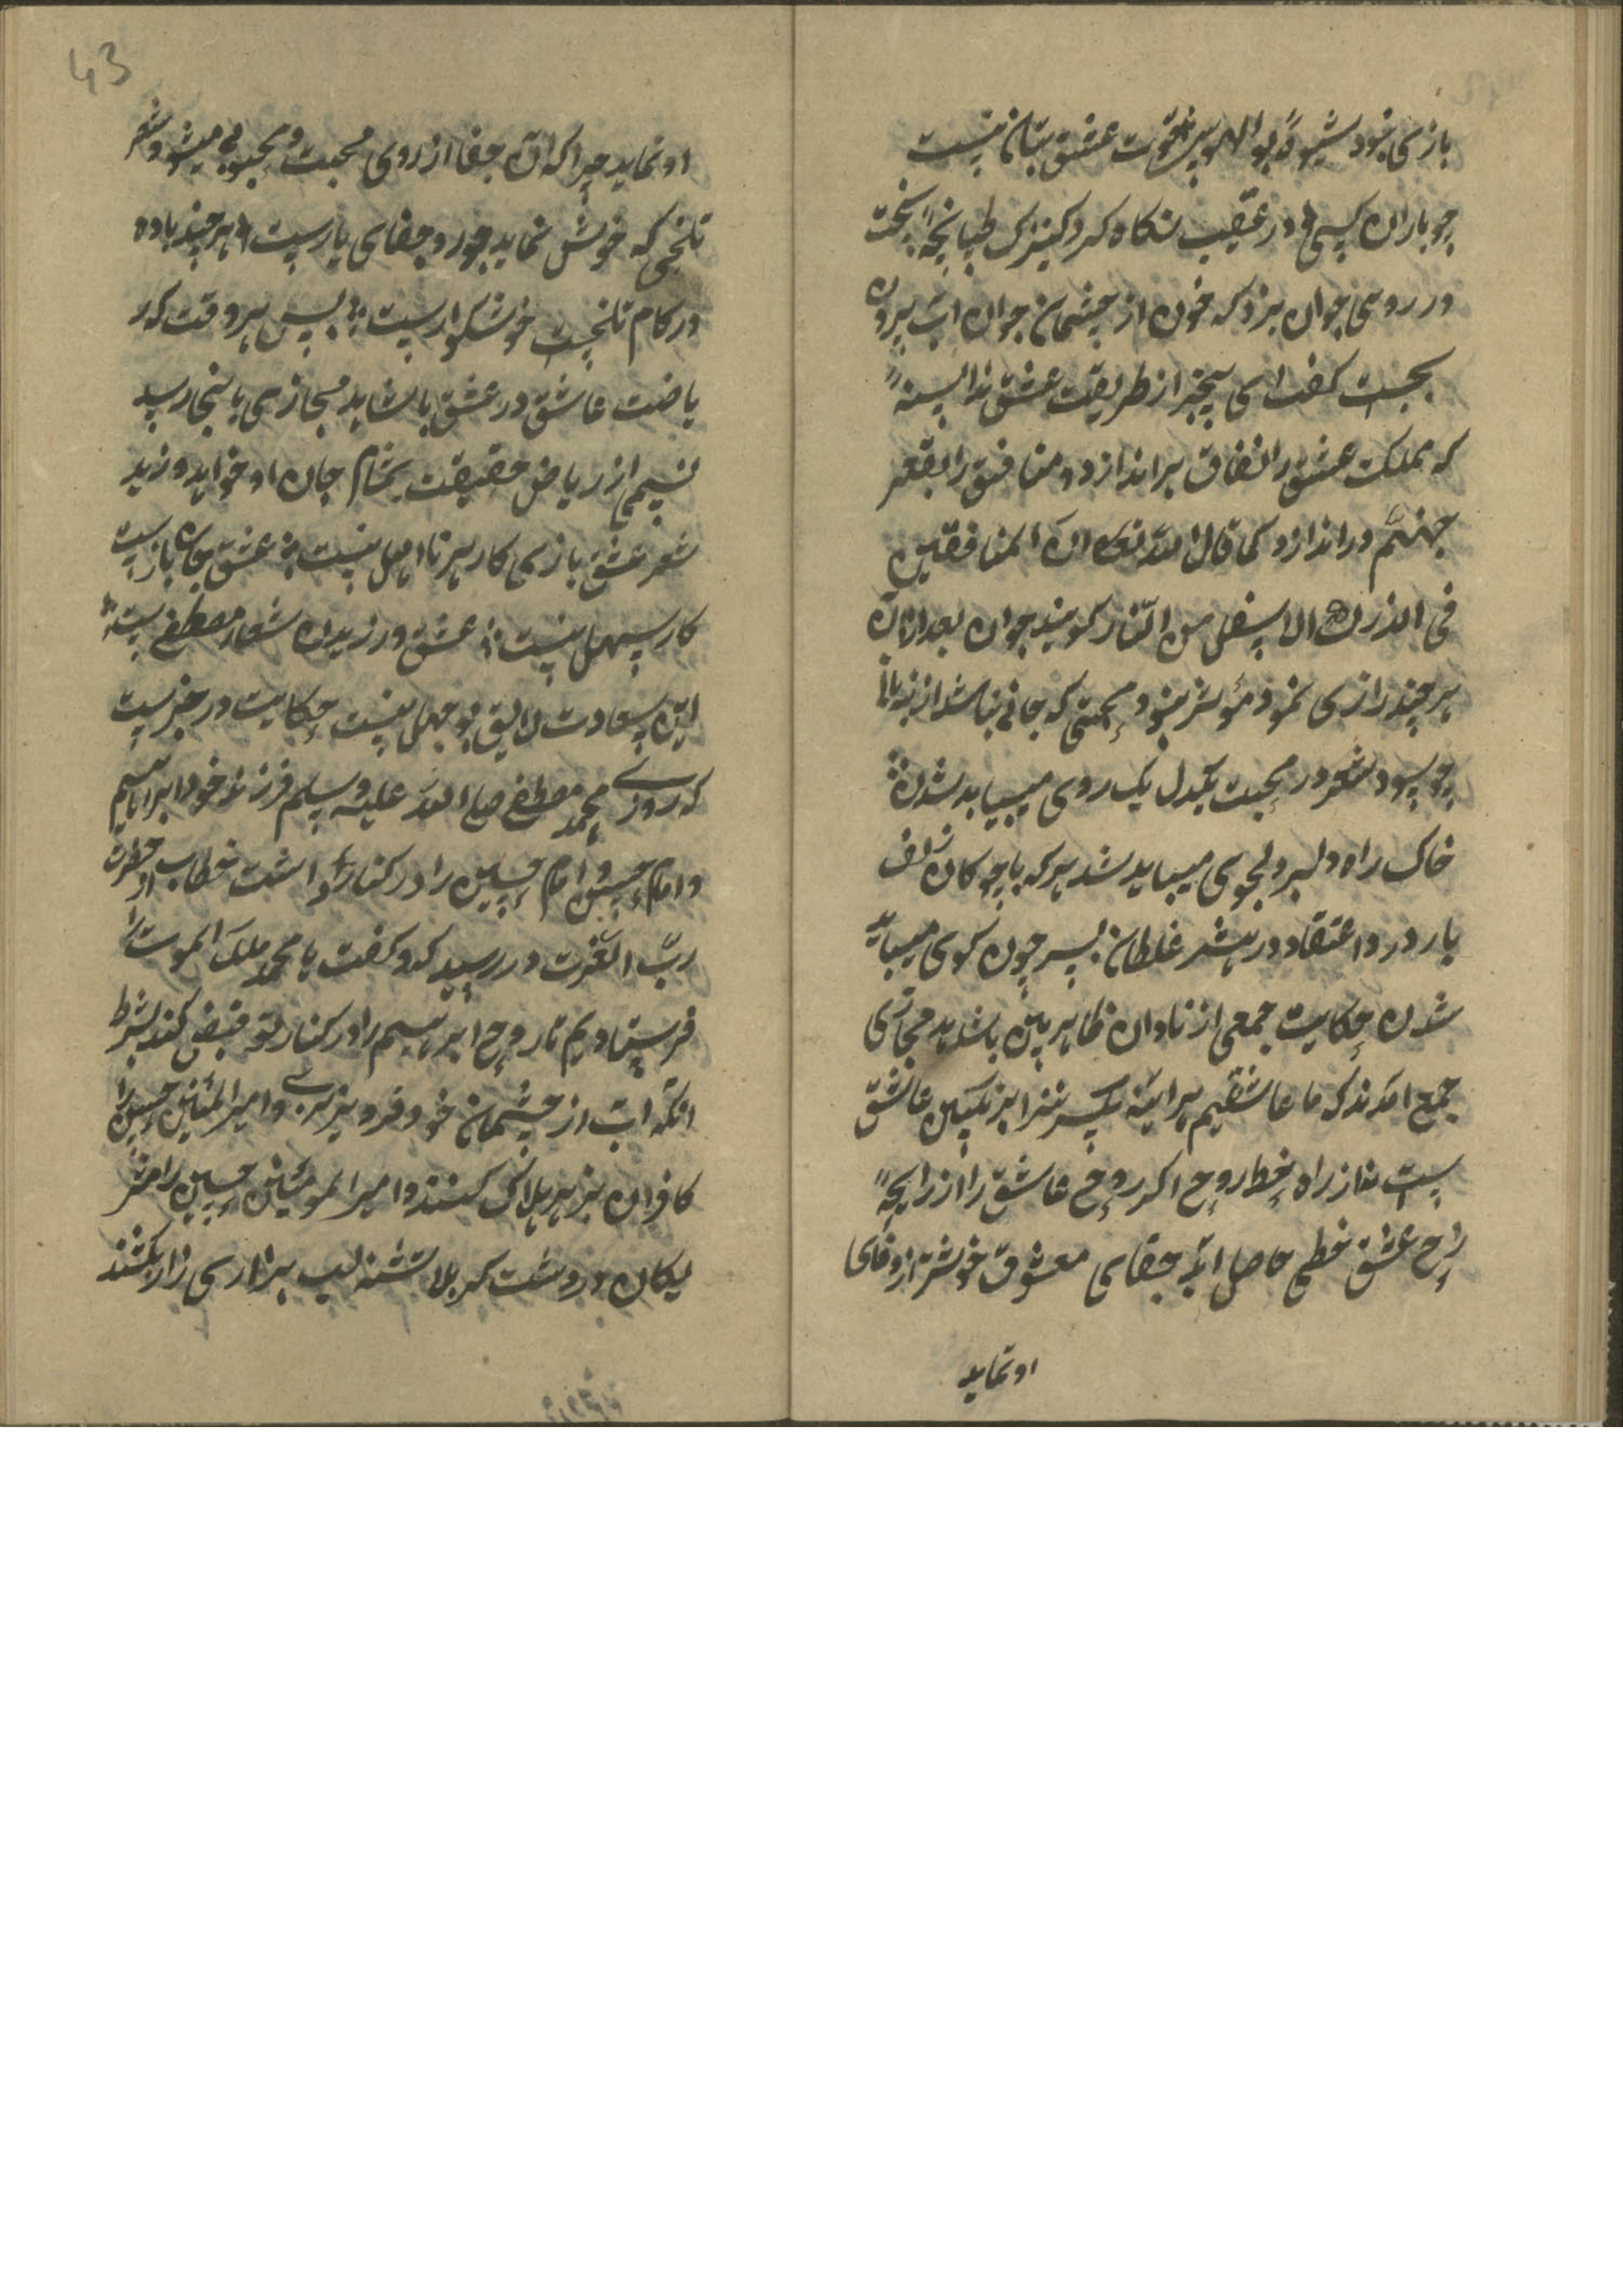 بازی نبود شیوهٔ بوالهوس شهوت عشق بتان نیست
چو باران کسی در عقیب نکاه کرد کنیزک طپانچهٔ سخت
در روی جوان بزد که خون از چشمان جوان آب برون
بجست کفت ای بیخبر از طریقت عشق ندانسته
که مملکت عشق را نفاق براندازد و منافق را بقعر
جهنّم دراندازد کما قال الله تعالی ان المنافقین
فی الدرک الاسفل من النّار کویند جوان بعد از آن
هر چند زاری نمود مؤثر نبود محبتی که جانی نباشد از زبان
چو سود شعر در محبت یکدل یک روی میباید شدن
خاک راه دلبر دلجوی میباید شد هر که با چوکان زلف
یار درد اعتقاد درپیش غلطان بسر چون کوی میباید
شدن حکایت جمعی از نادان ظاهر بین با شاهد مجازی
جمع آمدند که ما عاشقیم هرآینه یکسر عاشق
است نه از راه خط روح اکر روح عاشق را از رایحهٔ
راح عشق خطی حاصل آید جفای معشوق خوشتر از وفای
او نماید
43
او نماید چرا که آن جفا از روی محبت و محبوبی میشود شعر
تلخی که خوش نماید جور و جفای یارست هر چند باده
در کام تلخست خوشکوارست پس هر وقت که ر
یاضت عاشق در عشق با شاهد مجازی باینجا رسید
نسیمی از ریاض حقیقت بمشام جان او خواهد وزید
شعر عشق بازی کار هر نااهل نیست عشق جان بازیست
کار سهل نیست عشق ورزیدن شعار مصطفی است
این سعادت لایق بوجهل نیست حکایت در خبرست
که روزی محمد مصطفی صلی الله علیه وسلم فرزند خود ابراهیم
و امام حسن و امام حسین را در کنار داشت خطاب از حضرت
ربّ العزّت در رسید که وکفت یا محمد ملک الموت را
فرستادیم تا روح ابراهیم را در کنار تو قبض کند بشرط
انکه آب از چشمان خود فرو نریزی و امیر المؤمنین حسن را
کافران بزهر هلاک کنند و امیر المومنین حسین را مشر
لیکان در دشت کربلا تشنه لب بزاری زار بکشند